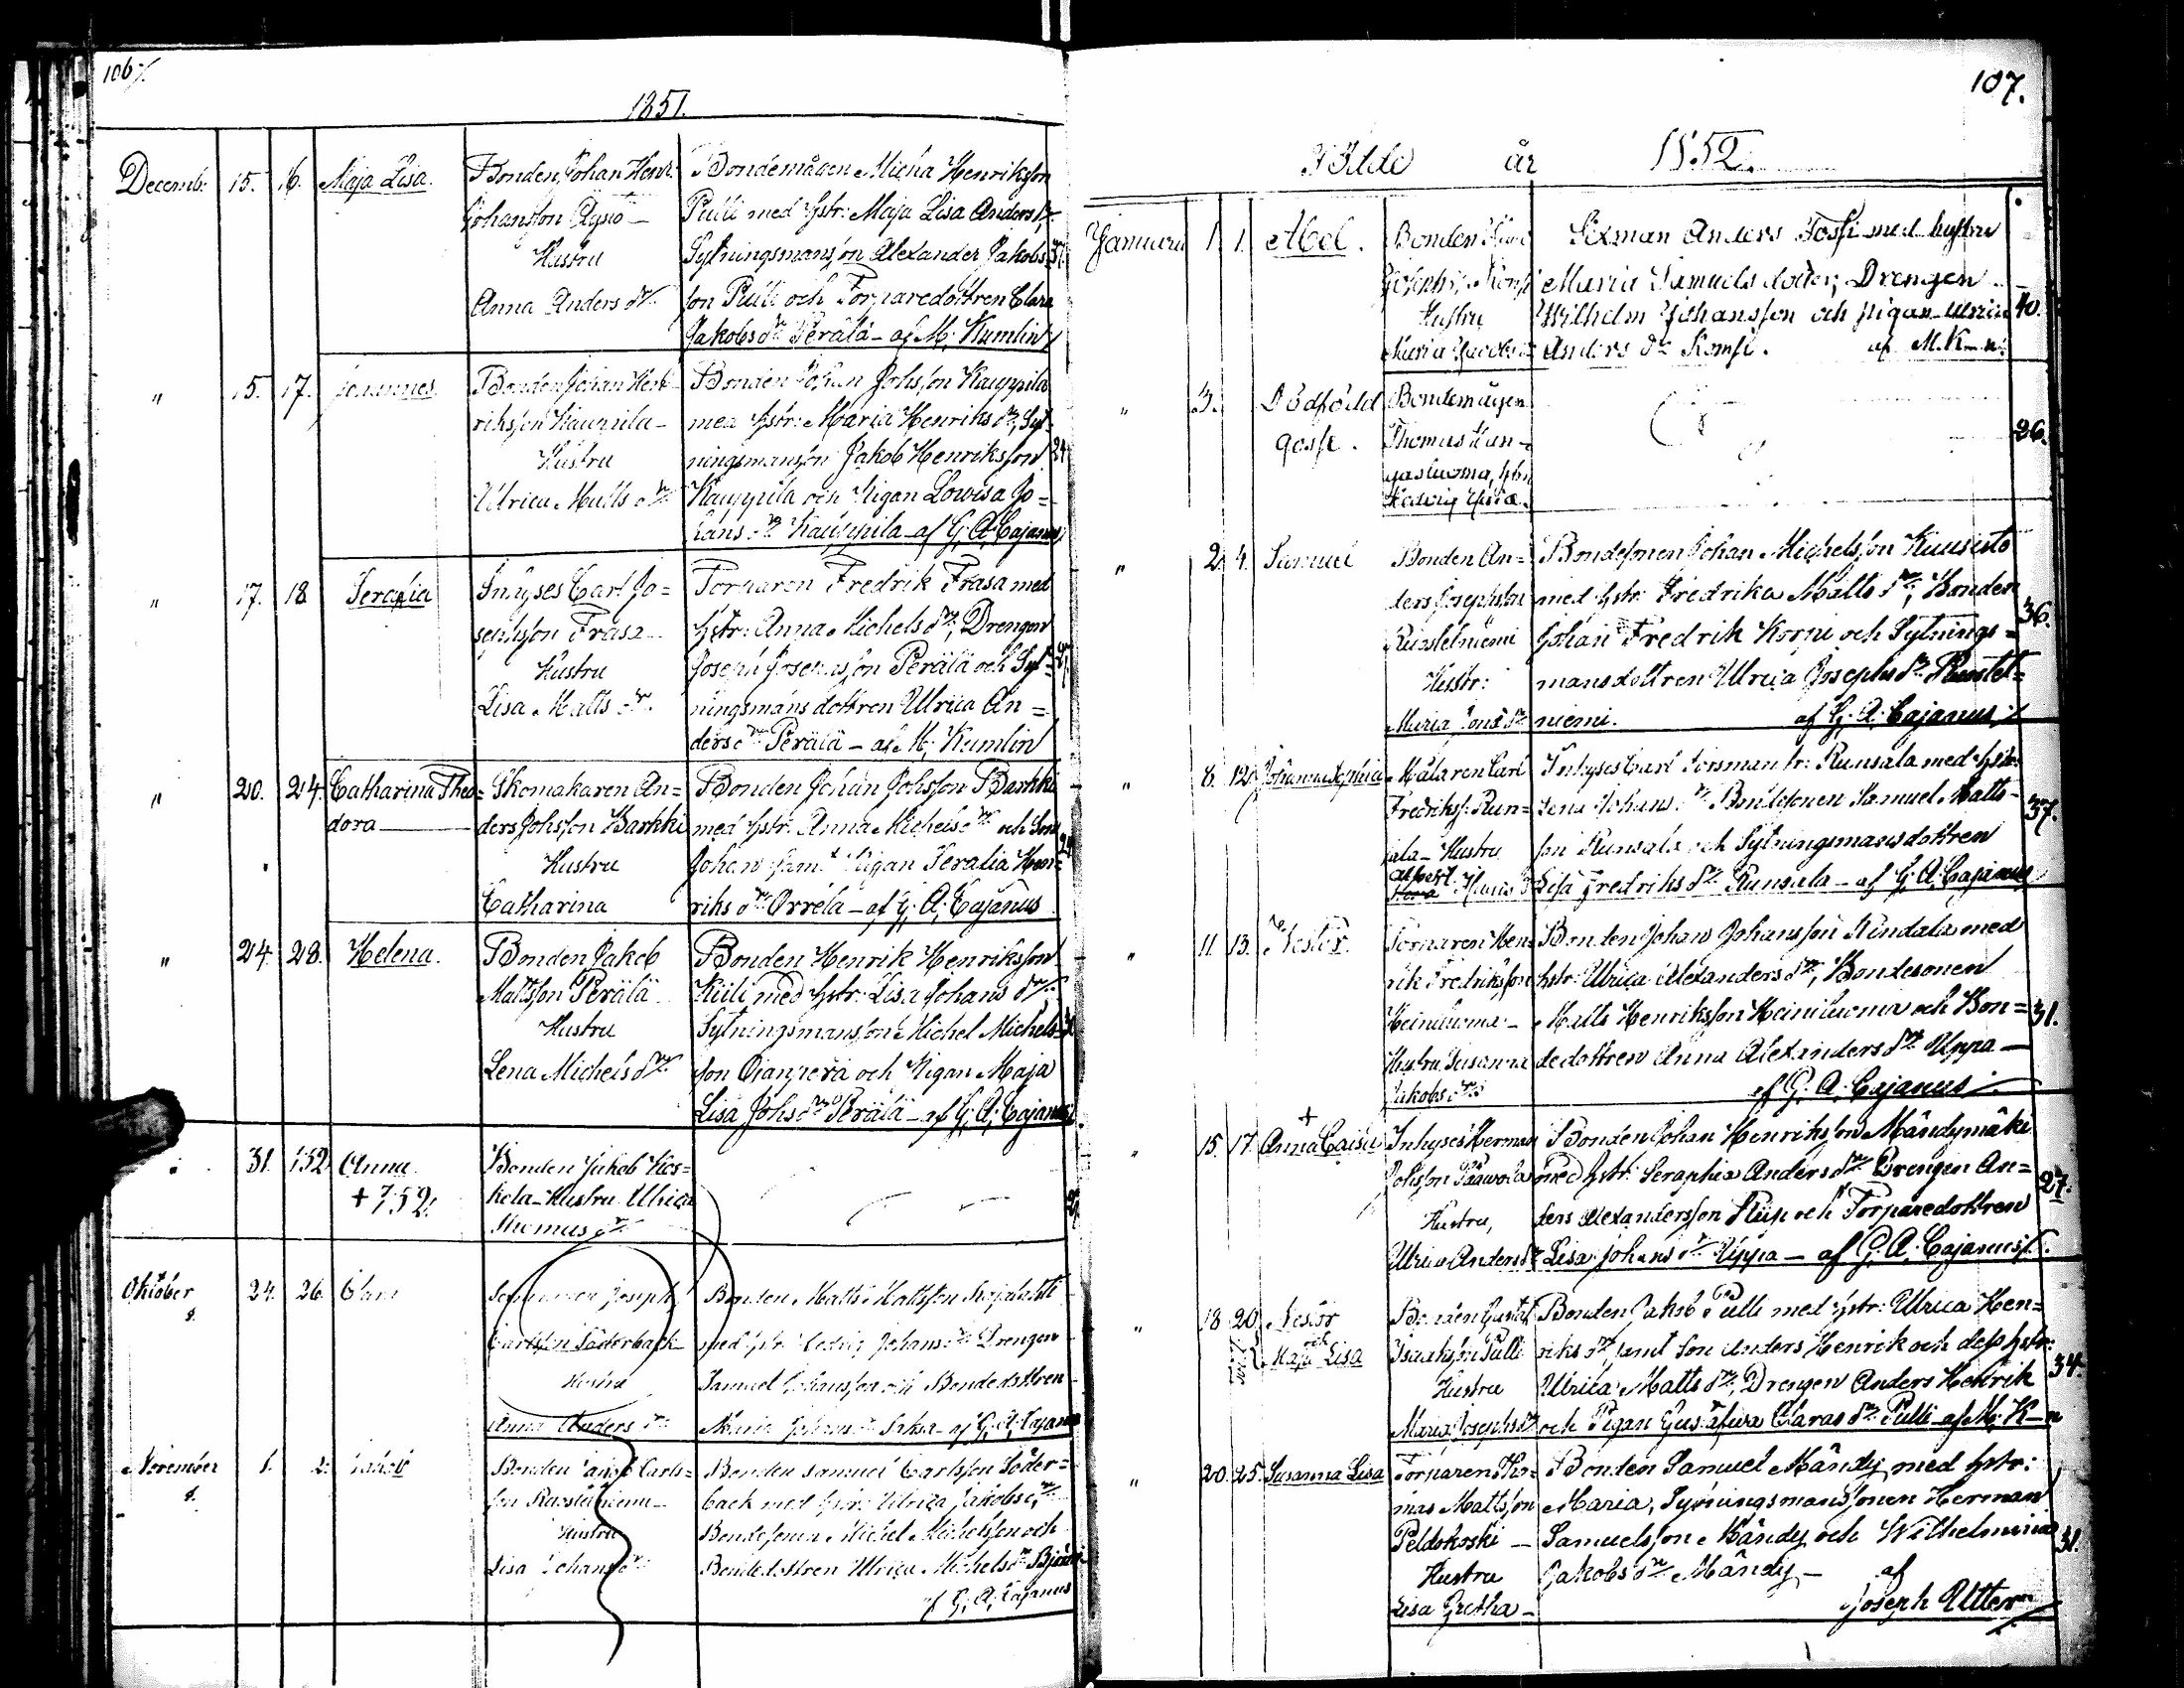 106.
1851.
Decemb: 15. 16. Maja Lisa.
Bonden Johan Henr:
Johansson Äystö —
Hustru
Anna Anders dr.
Bondemågen Micha Henriksson
Pulli med hstr: Maja Lisa Anders dr,
Sytningsmansson Alexander Jakobs-
son Pulli och Torparedottren Clara
Jakobs dr Perälä — af M. Kumlin
" 15. 17. Johannes
Bonden Johan Hen-
riksson Kauppila —
Hustru
Ulrica Matts dr
Bonden Johan Johsson Kauppila
med hstr: Maria Henriks dr, Syt-
ningsmansson Jakob Henriksson
Kauppila och Pigan Lowisa Jo=
hans dr Kauppila — af G. A. Cajanus
" 17. 18 Serafia
Inhyses Carl Jo=
sephsson Frasa
Hustru
Lisa Matts dr.
Torparen Fredrik Frasa med
hstr: Anna Michels dr, Drengen
Joseph Josephsson Perälä och Syt-
ningsmans dottren Ulrica An=
ders dr Perälä — af M. Kumlin
" 20. 24. Catharina Theo=
dora
Skomakaren An=
ders Johsson Barkki
Hustru
Catharina
Bonden Johan Johsson Barkki
med hstr: Anna Michels dr och Son
Johan samt Pigan Seralia Hen=
riks dr Orrela — af G. A. Cajanus
" 24. 28. Helena.
Bonden Jakob
Mattsson Perälä
Hustru
Lena Michels dr
Bonden Henrik Henriksson
Kiili med hstr: Lisa Johans dr.
Sytningsmansson Michel Michels-
son Ojanperä och Pigan Maja
Lisa Johs dr Perälä — af G. A. Cajanus
31. 1 52 Anna
+ 7 52.
Bonden Jakob Kos=
kela — Hustru Ulrica
Thomas dr
Oktober 24. 26.
Joseph
Carlsson Söderback
Hustru
Anna Anders dr
Bonden Matts Mattsson Lajalahti
med hstr: Hedvig Johans dr Drengen
Samuel Johansson och Bondedottren
Maria Johans dr — af G. A. Cajanus
November 1. 2. Jakob
Bonden Carls=
son
Hustru
Lisa Johans dr
Bonden Samuel Carlsson Söder=
back med hstr: Ulrica Jakobs dr,
Bondesonen Michel Michelsson och
Bondedottren Ulrica Michels dr
af G. A. Cajanus
107.
Födde år 1852.
Januari 1. 1. Abel.
Bonden
Josephs:
Hustru
Maria Jacobs dr
Sexman Anders Fossi med hustru
Maria Samuels doter, Drengen
Wilhelm Johansson och pigan Maria
Anders dr Komsi. af M. K—n.
40.
" 3. Dödfödd
gosse.
Bondemågen
Thomas Kan-
gasluoma, hstru
Hedvig
26.
" 2. 4. Samuel
Bonden An=
ders Josephsson
Ruostetniemi
Hustr:
Maria Johs dr
Bondesonen Johan Michelsson Kuusisto
med hstr: Fredrika Matts dr, Bonden
Johan Fredrik Korpi och Sytnings=
mansdottren Ulrica Josephs dr Ruostet=
niemi. af G. A. Cajanus
36.
" 8. 12. Johanna Sophia
Målaren Carl
Fredriksson Run=
sala — Hustru
Inhyses Carl Forsman fr: Runsala med hstr:
Lena Johans dr Bondesonen Samuel Matts-
son Runsala och Sytningsmansdottren
Lisa Fredriks dr Runsala — af G. A. Cajanus
37.
" 11. 13. Nestor.
Torparen Hen=
rik Fredriksson
Heiniluoma —
Hustru Susanna
Jakobs dr
Bonden Johan Johansson Rindala med
hstr: Ulrica Alexanders dr, Bondesonen
Matts Henriksson Heiniluoma och Bon=
dedottren Anna Alexanders dr Uppa —
af G. A. Cajanus
31.
+
" 15. 17. Anna Caisa
Inhyses Herman
Johsson Paawola
Hustru,
Ulrica Anders dr
Bonden Johan Henriksson Mändymäki
med hstr: Seraphia Anders dr Drengen An=
ders Alexandersson Riip och Torparedottren
Lisa Johans dr Uppa — af G. A. Cajanus.
27.
" 18 20. Nestor
och
Maja Lisa
Bonden Gustaf
Isaaksson Pulli
Hustru
Maria Josephs dr
Bonden Jakob Pulli med hstr: Ulrica Hen=
riks dr, samt Son Anders Henrik och dess hstr:
Ulrica Matts dr, Drengen Anders Henrik
och Pigan Gustafwa Claras dr Pulli — af M. K—n
34.
" 20. 25. Susanna Lisa
Torparen Tho=
mas Mattsson
Peldokoski —
Hustru
Lisa Gretha —
Bonden Samuel Mändy med hstr:
Maria, Sytningsmanssonen Herman
Samuelsson Mändy och Wilhelmina
Jakobs dr Mändy — af
Joseph Utter
31.